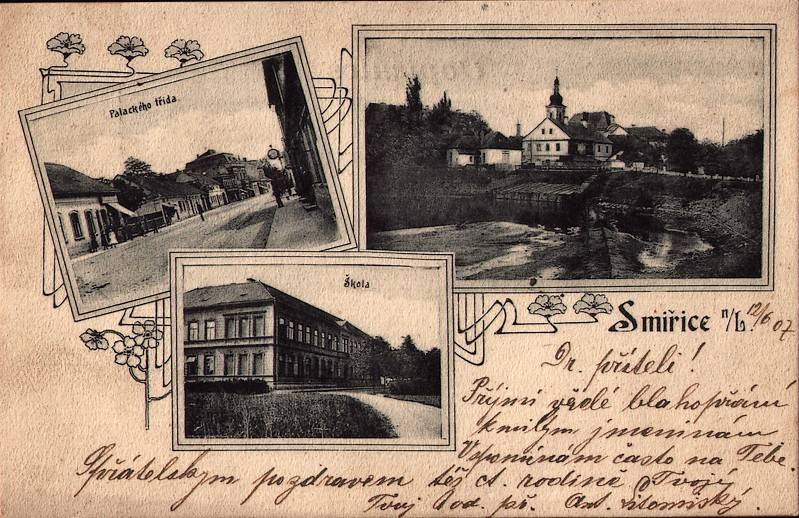 Palackého třída
Škola
Smiřice n/L.
12/6 07
Dr. příteli!
Přijmi vřelé blahopřání
k milým jmeninám
Vzpomínám často na Tebe.
S přátelským pozdravem též ct. rodině Tvojí
Tvůj odd. př. Ant. Litomiský